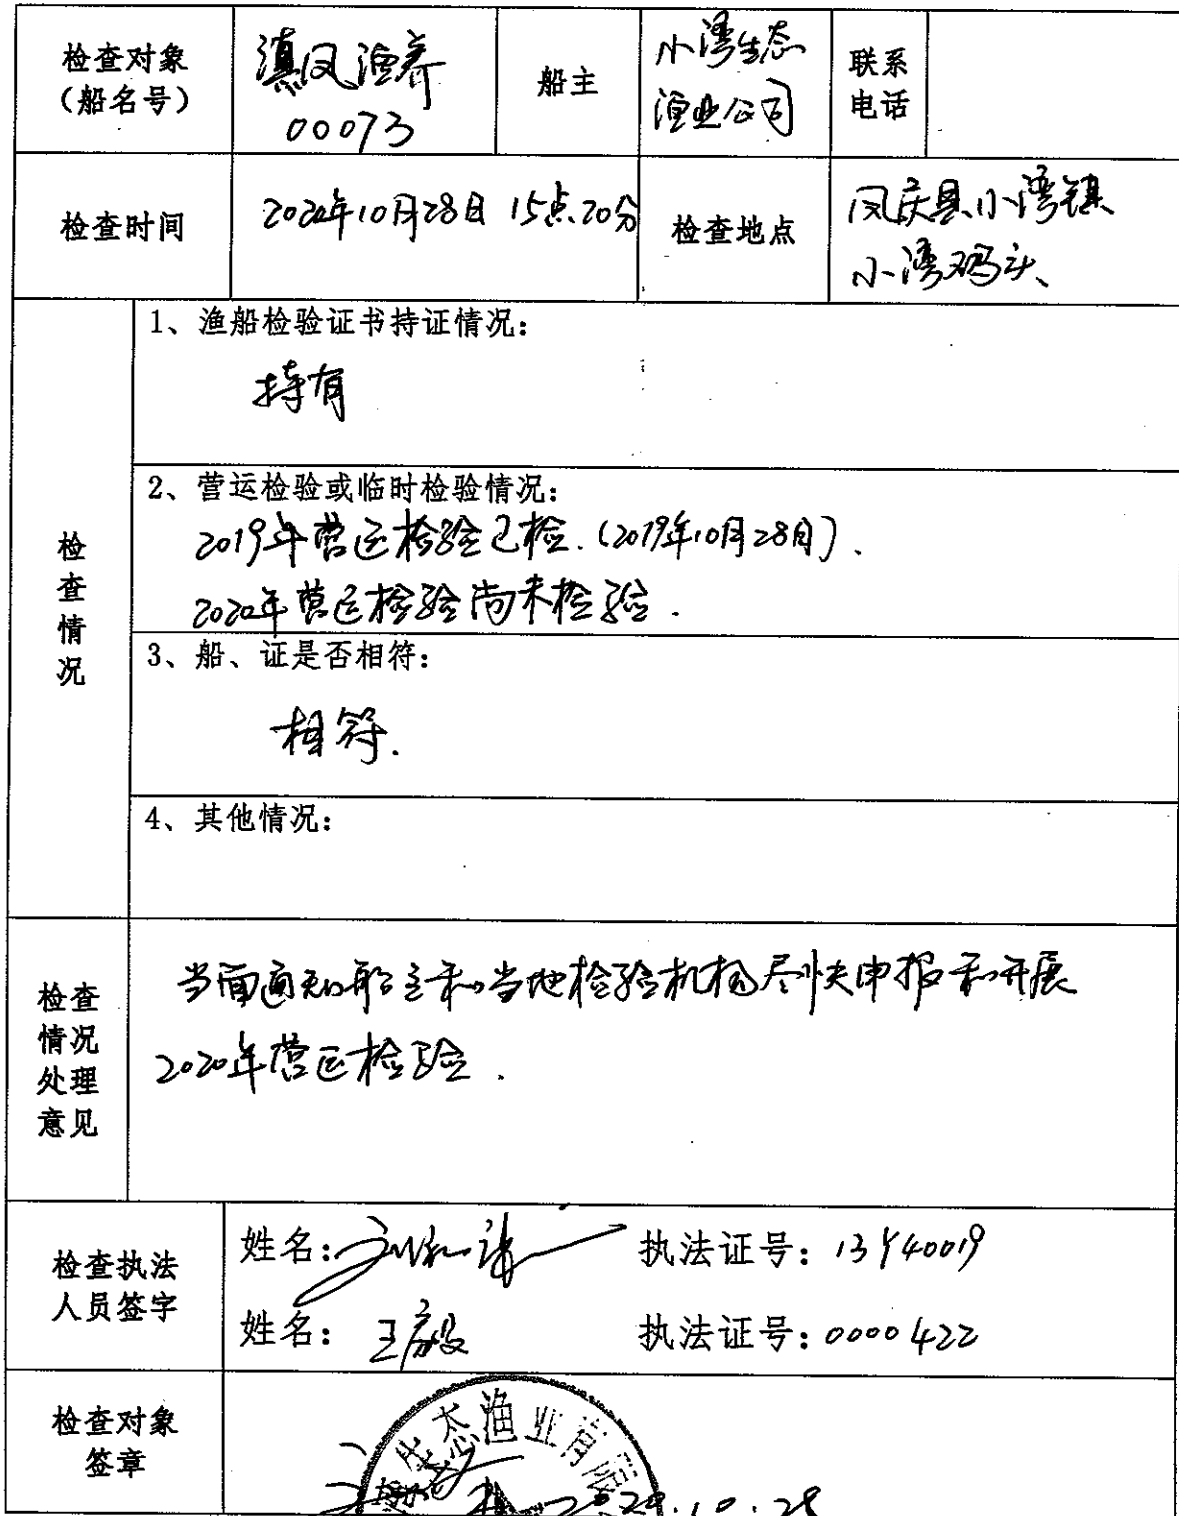 检查对象
（船名号）
滇凤渔养
00073
船主
小湾生态
渔业公司
联系
电话
检查时间
2020年10月28日 15点20分
检查地点
凤庆县小湾镇
小湾码头、
检查情况
1、渔船检验证书持证情况：
持有
2、营运检验或临时检验情况：
2019年营运检验已检.（2019年10月28日）、
2020年营运检验尚未检验.
3、船、证是否相符：
相符.
4、其他情况：
检查
情况
处理
意见
当面通知船主和当地检验机构尽快申报和开展
2020年营运检验.
检查执法
人员签字
姓名：
执法证号：13Y40019
姓名：王毅
执法证号：0000422
检查对象
签章
生态渔业有限
10.28